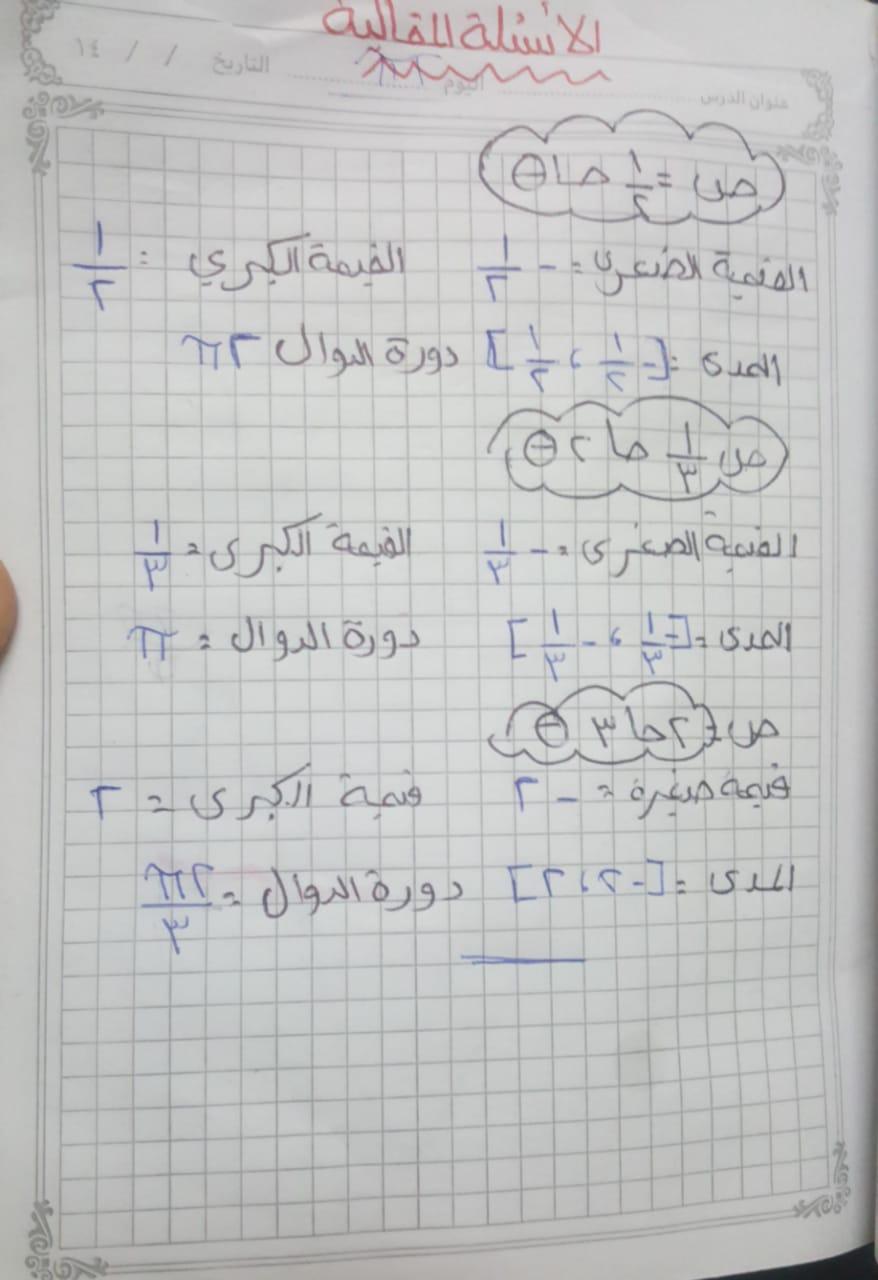 الأسئلة المقالية
عنوان الدرس اليوم التاريخ / / ١٤
ص = ١/٢ حا θ
القيمة الصغرى = - ١/٢ القيمة الكبرى = ١/٢
المدى = [- ١/٢ ، ١/٢] دورة الدوال ٢π
ص ١/٣ حا ٢ θ
القيمة الصغرى = - ١/٣ القيمة الكبرى = ١/٣
المدى = [- ١/٣ ، - ١/٣] دورة الدوال = π
ص = ٢ حا ٣ θ
قيمة صغيرة = - ٢ قيمة الكبرى = ٢
المدى = [- ٢ ، ٢] دورة الدوال = ٢π/٣